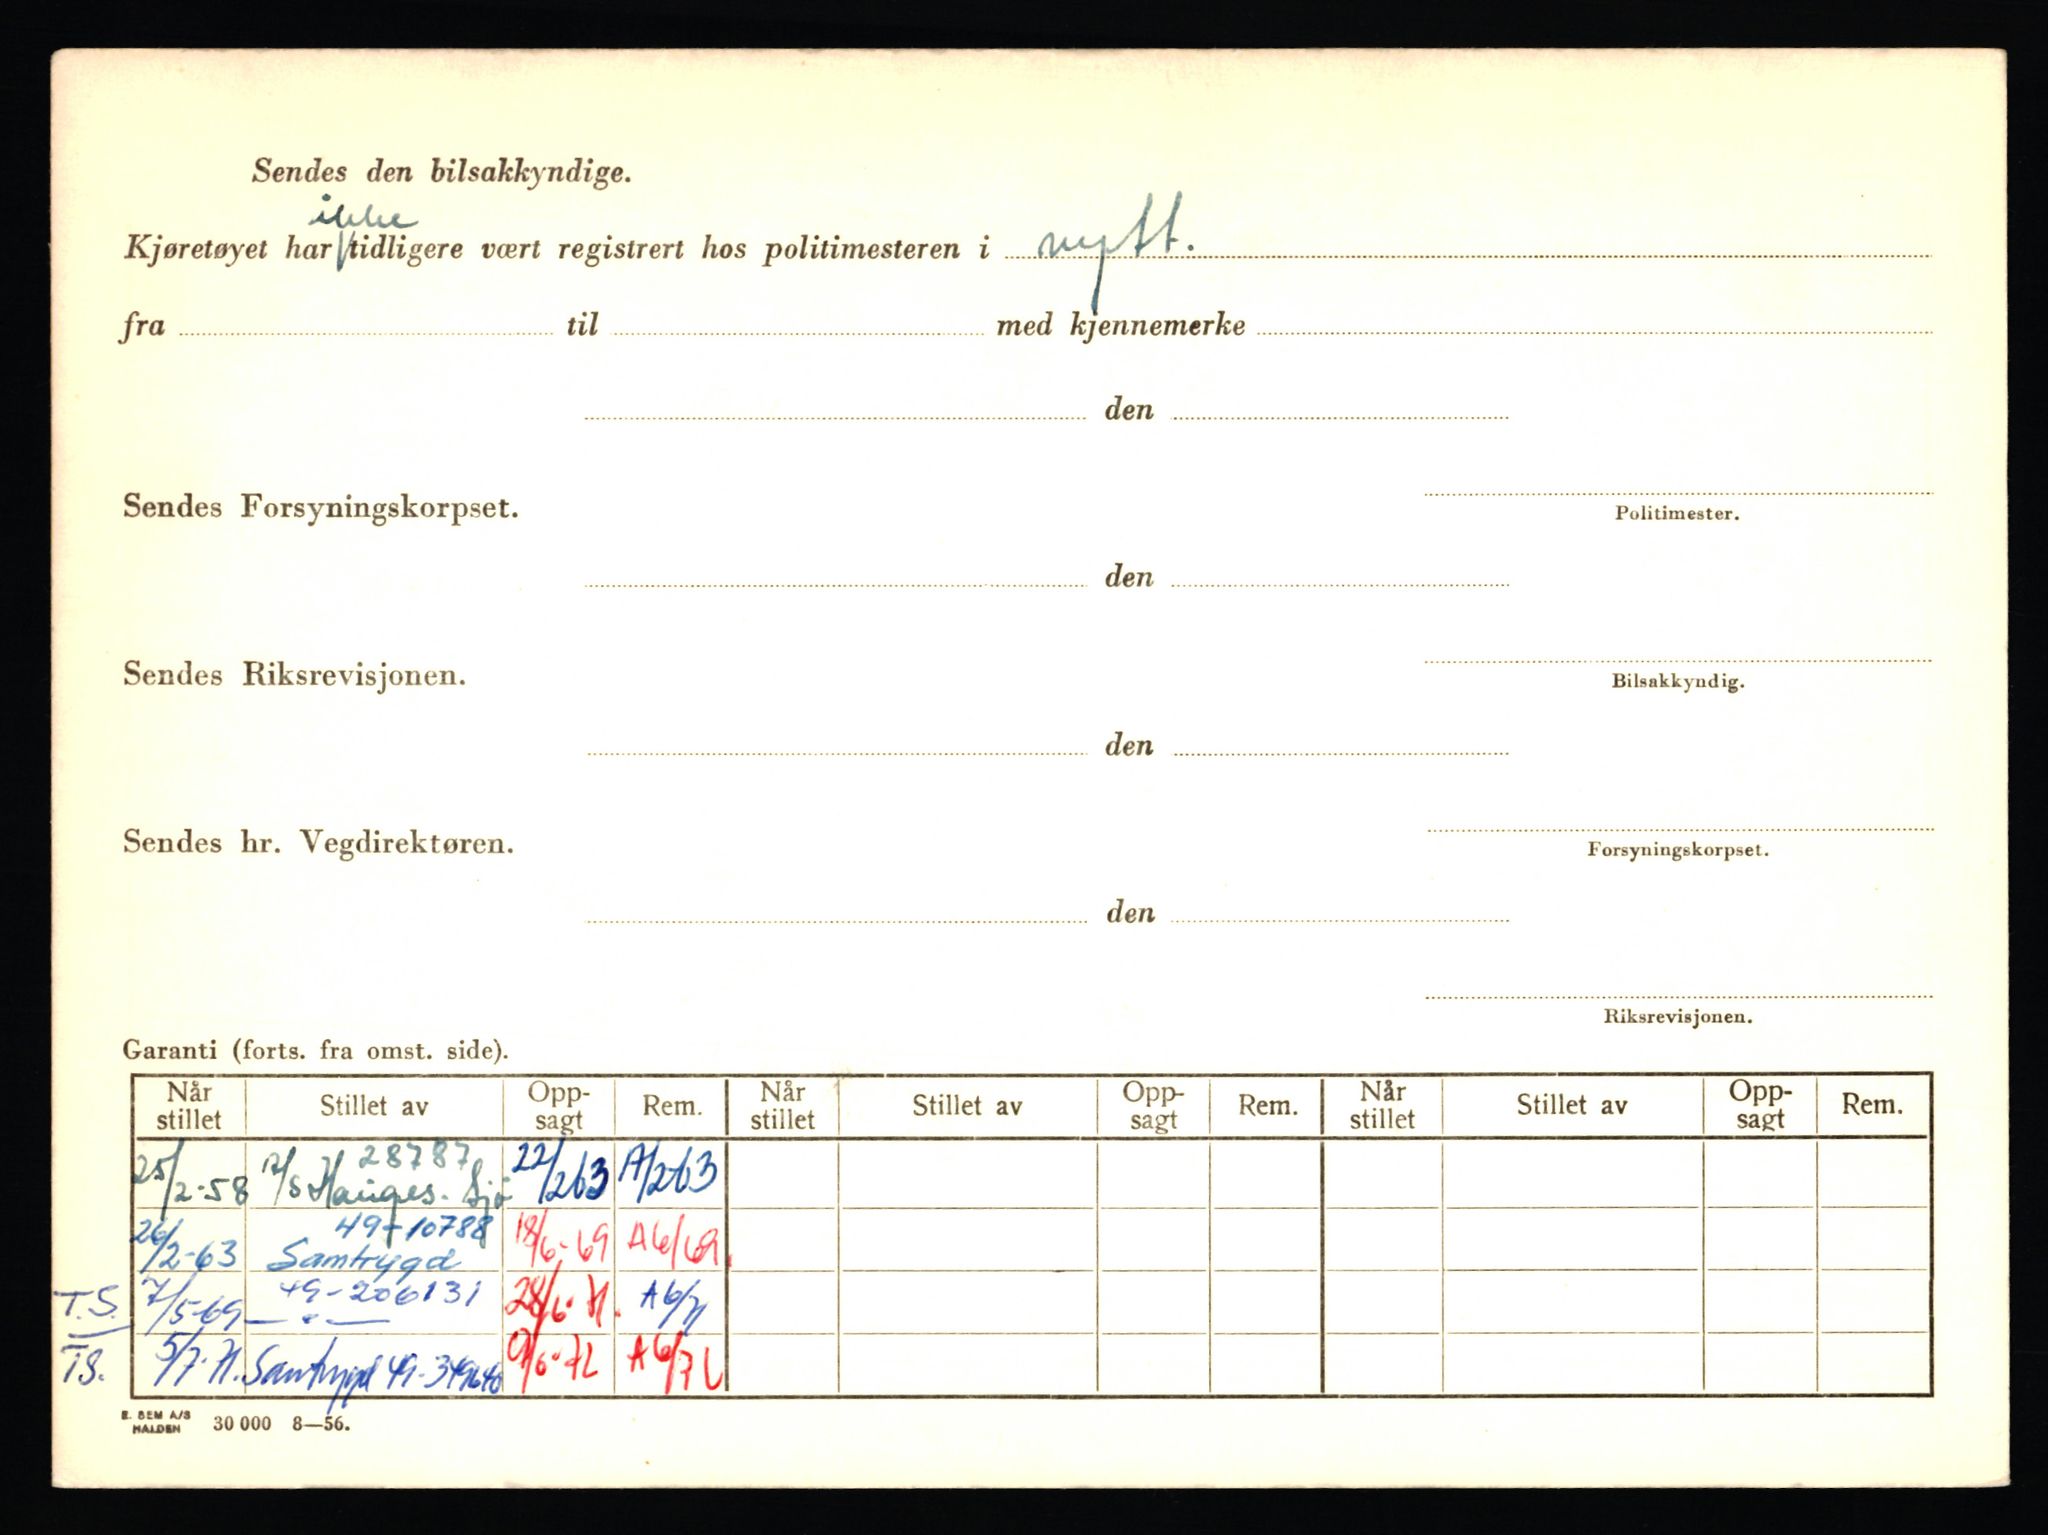 Sendes den bilsakkyndige.
ikke
Kjøretøyet har tidligere vært registrert hos politimesteren i nytt.
fra til med kjennemerke
den
Sendes Forsyningskorpset.
Politimester.
den
Sendes Riksrevisjonen.
Bilsakkyndig.
den
Sendes hr. Vegdirektøren.
Forsyningskorpset.
den
Riksrevisjonen.
Garanti (forts. fra omst. side).
Når stillet Stillet av Opp-sagt Rem. Når stillet Stillet av Opp-sagt Rem. Når stillet Stillet av Opp-sagt Rem.
28787
25/2-58 Hauges. Sjø 22/263 A/2-63
49-10788
26/2-63 Samtrygd 18/6-69 A6/69.
49-206131
T.S. 7/5-69 — " — 28/6-71. A6/71
TS. 5/7-71. Samtrygd 49-349640 9/6-72 A6/72
E. SEM A/S
HALDEN 30 000 8—56.